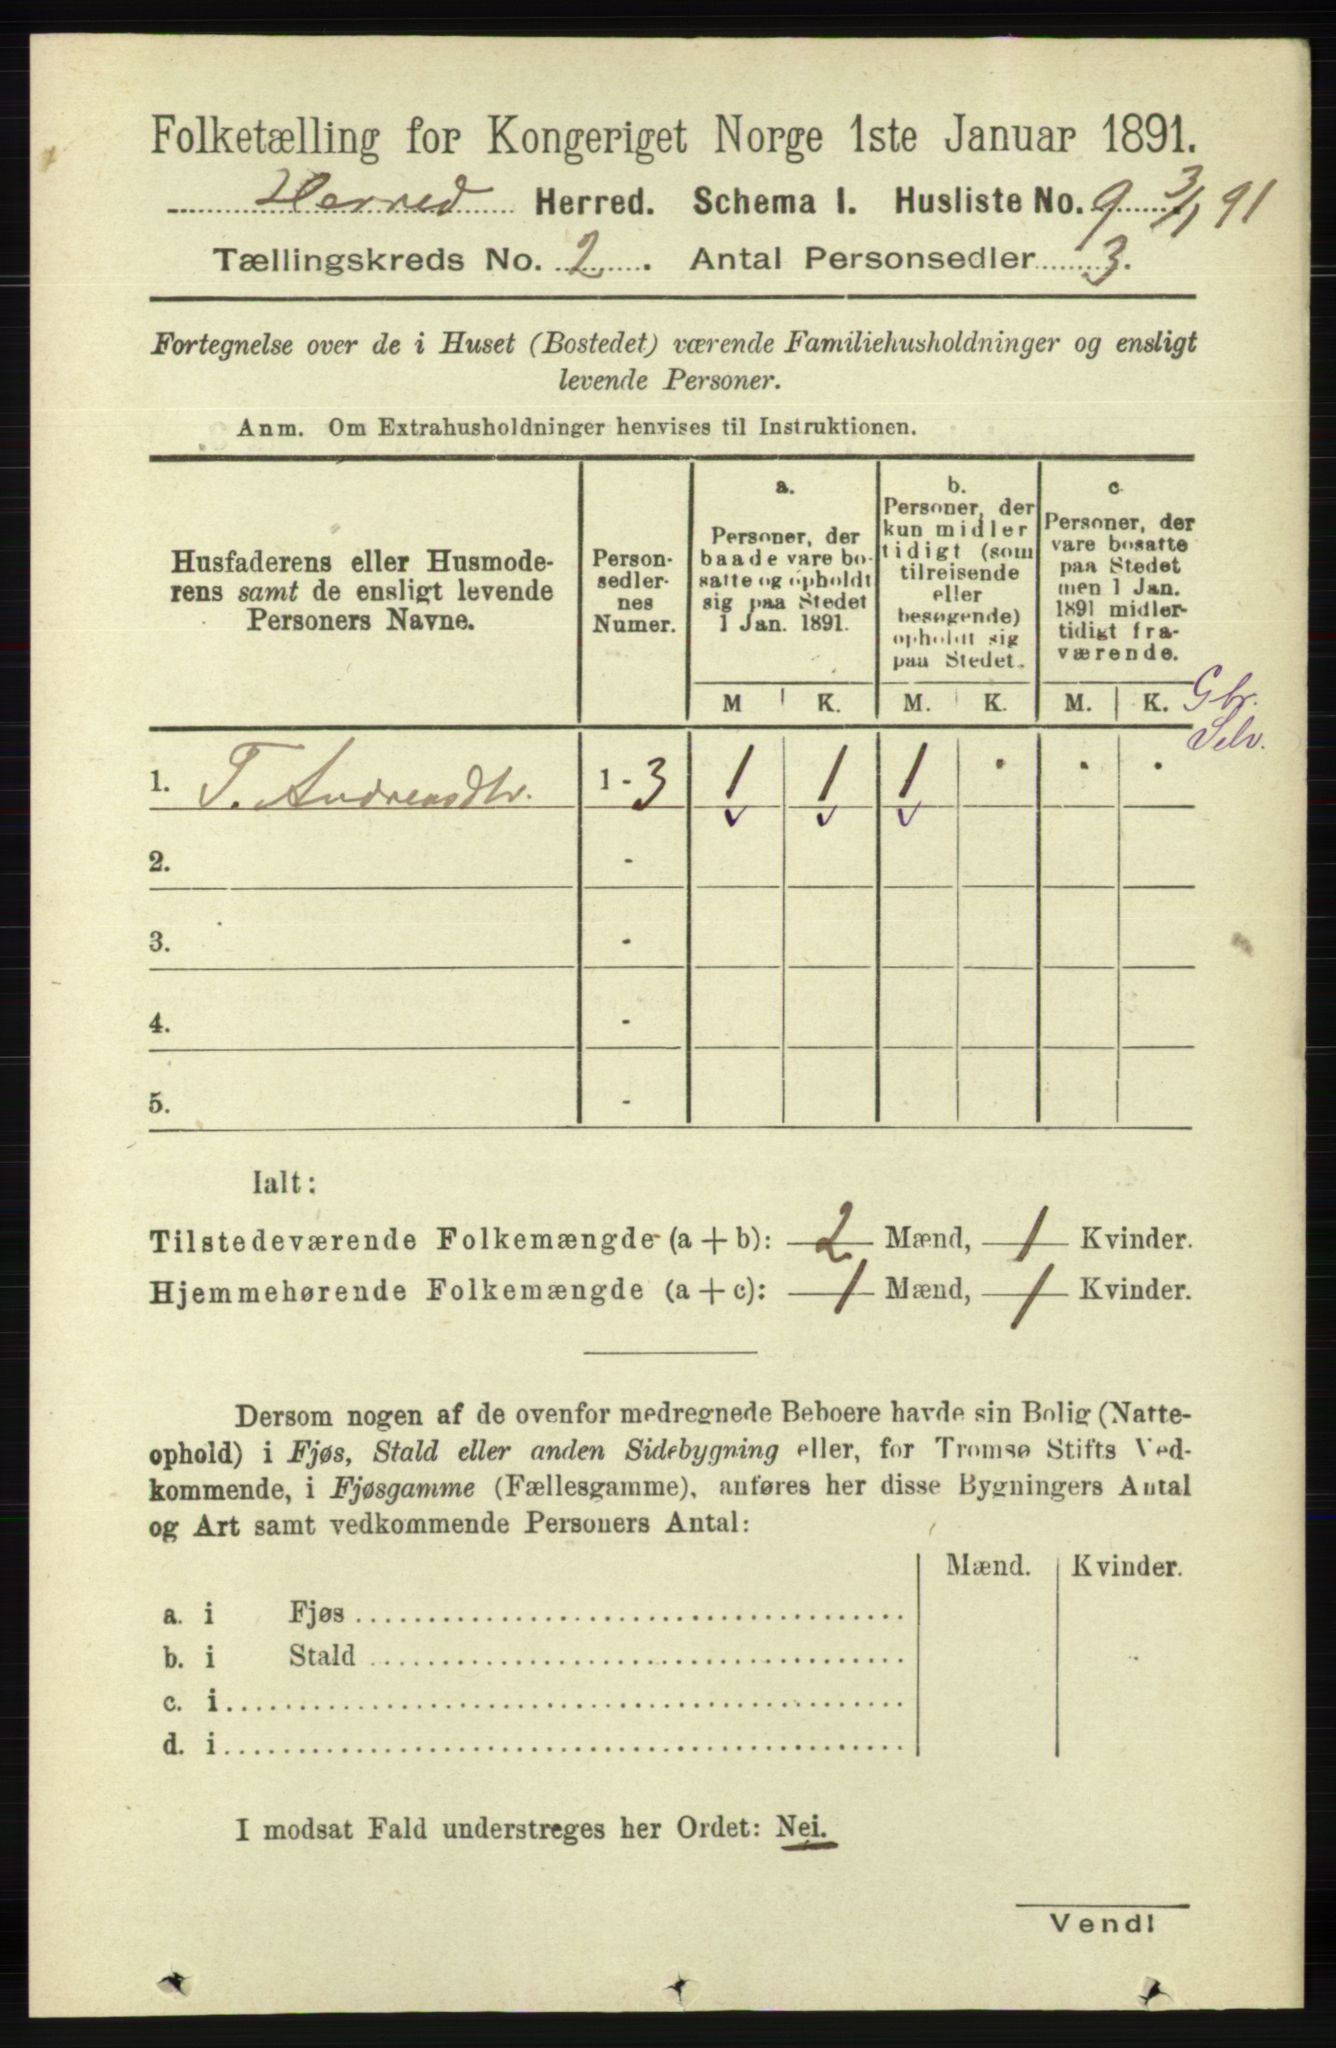 Folketælling for Kongeriget Norge 1ste Januar 1891.
Herred Herred. Schema I. Husliste No. 9 3/1 91
Tællingskreds No. 2. Antal Personsedler 3.
Fortegnelse over de i Huset (Bostedet) værende Familiehusholdninger og ensligt
levende Personer.
Anm. Om Extrahusholdninger henvises til Instruktionen.
Husfaderens eller Husmode-
rens samt de ensligt levende
Personers Navne.
Person-
sedler-
nes
Numer.
a.
Personer, der
baade vare bo-
satte og opholdt
sig paa Stedet
1 Jan. 1891.
b.
Personer, der
kun midler
tidigt (som
tilreisende
eller
besøgende)
opholdt sig
paa Stedet.
c
Personer, der
vare bosatte
paa Stedet
men 1 Jan.
1891 midler-
tidigt fra-
værende.
M K. M. K. M. K. Gbr.
Selv.
1. T. Andreasdtr. 1 - 3 1 1 1 . . .
2. -
3. -
4. -
5. -
Ialt:
Tilstedeværende Folkemængde (a + b): 2 Mænd, 1 Kvinder.
Hjemmehørende Folkemængde (a + c): 1 Mænd, 1 Kvinder.
Dersom nogen af de ovenfor medregnede Beboere havde sin Bolig (Natte-
ophold) i Fjøs, Stald eller anden Sidebygning eller, for Tromsø Stifts Ved-
kommende, i Fjøsgamme (Fællesgamme), anføres her disse Bygningers Antal
og Art samt vedkommende Personers Antal:
Mænd. Kvinder.
a. i Fjøs
b. i Stald
c. i
d. i
I modsat Fald understreges her Ordet: Nei.
Vend!